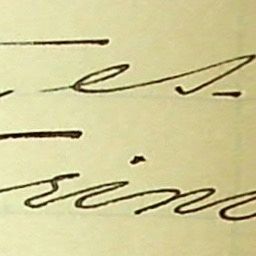 Tes
Trino